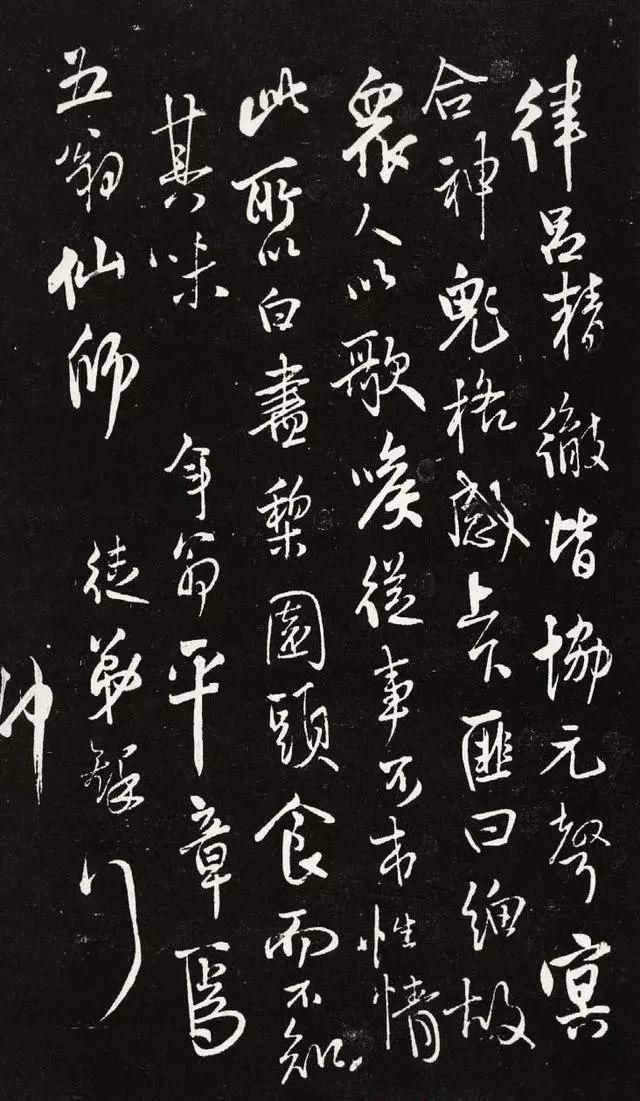 律呂精徹皆協元聲冥
合神鬼格感上下匪曰細故
眾人以歌喚從事不本性情
此所以白晝黎園頭食而不知
其味 年翁平章焉
五翁仙師 徒弟